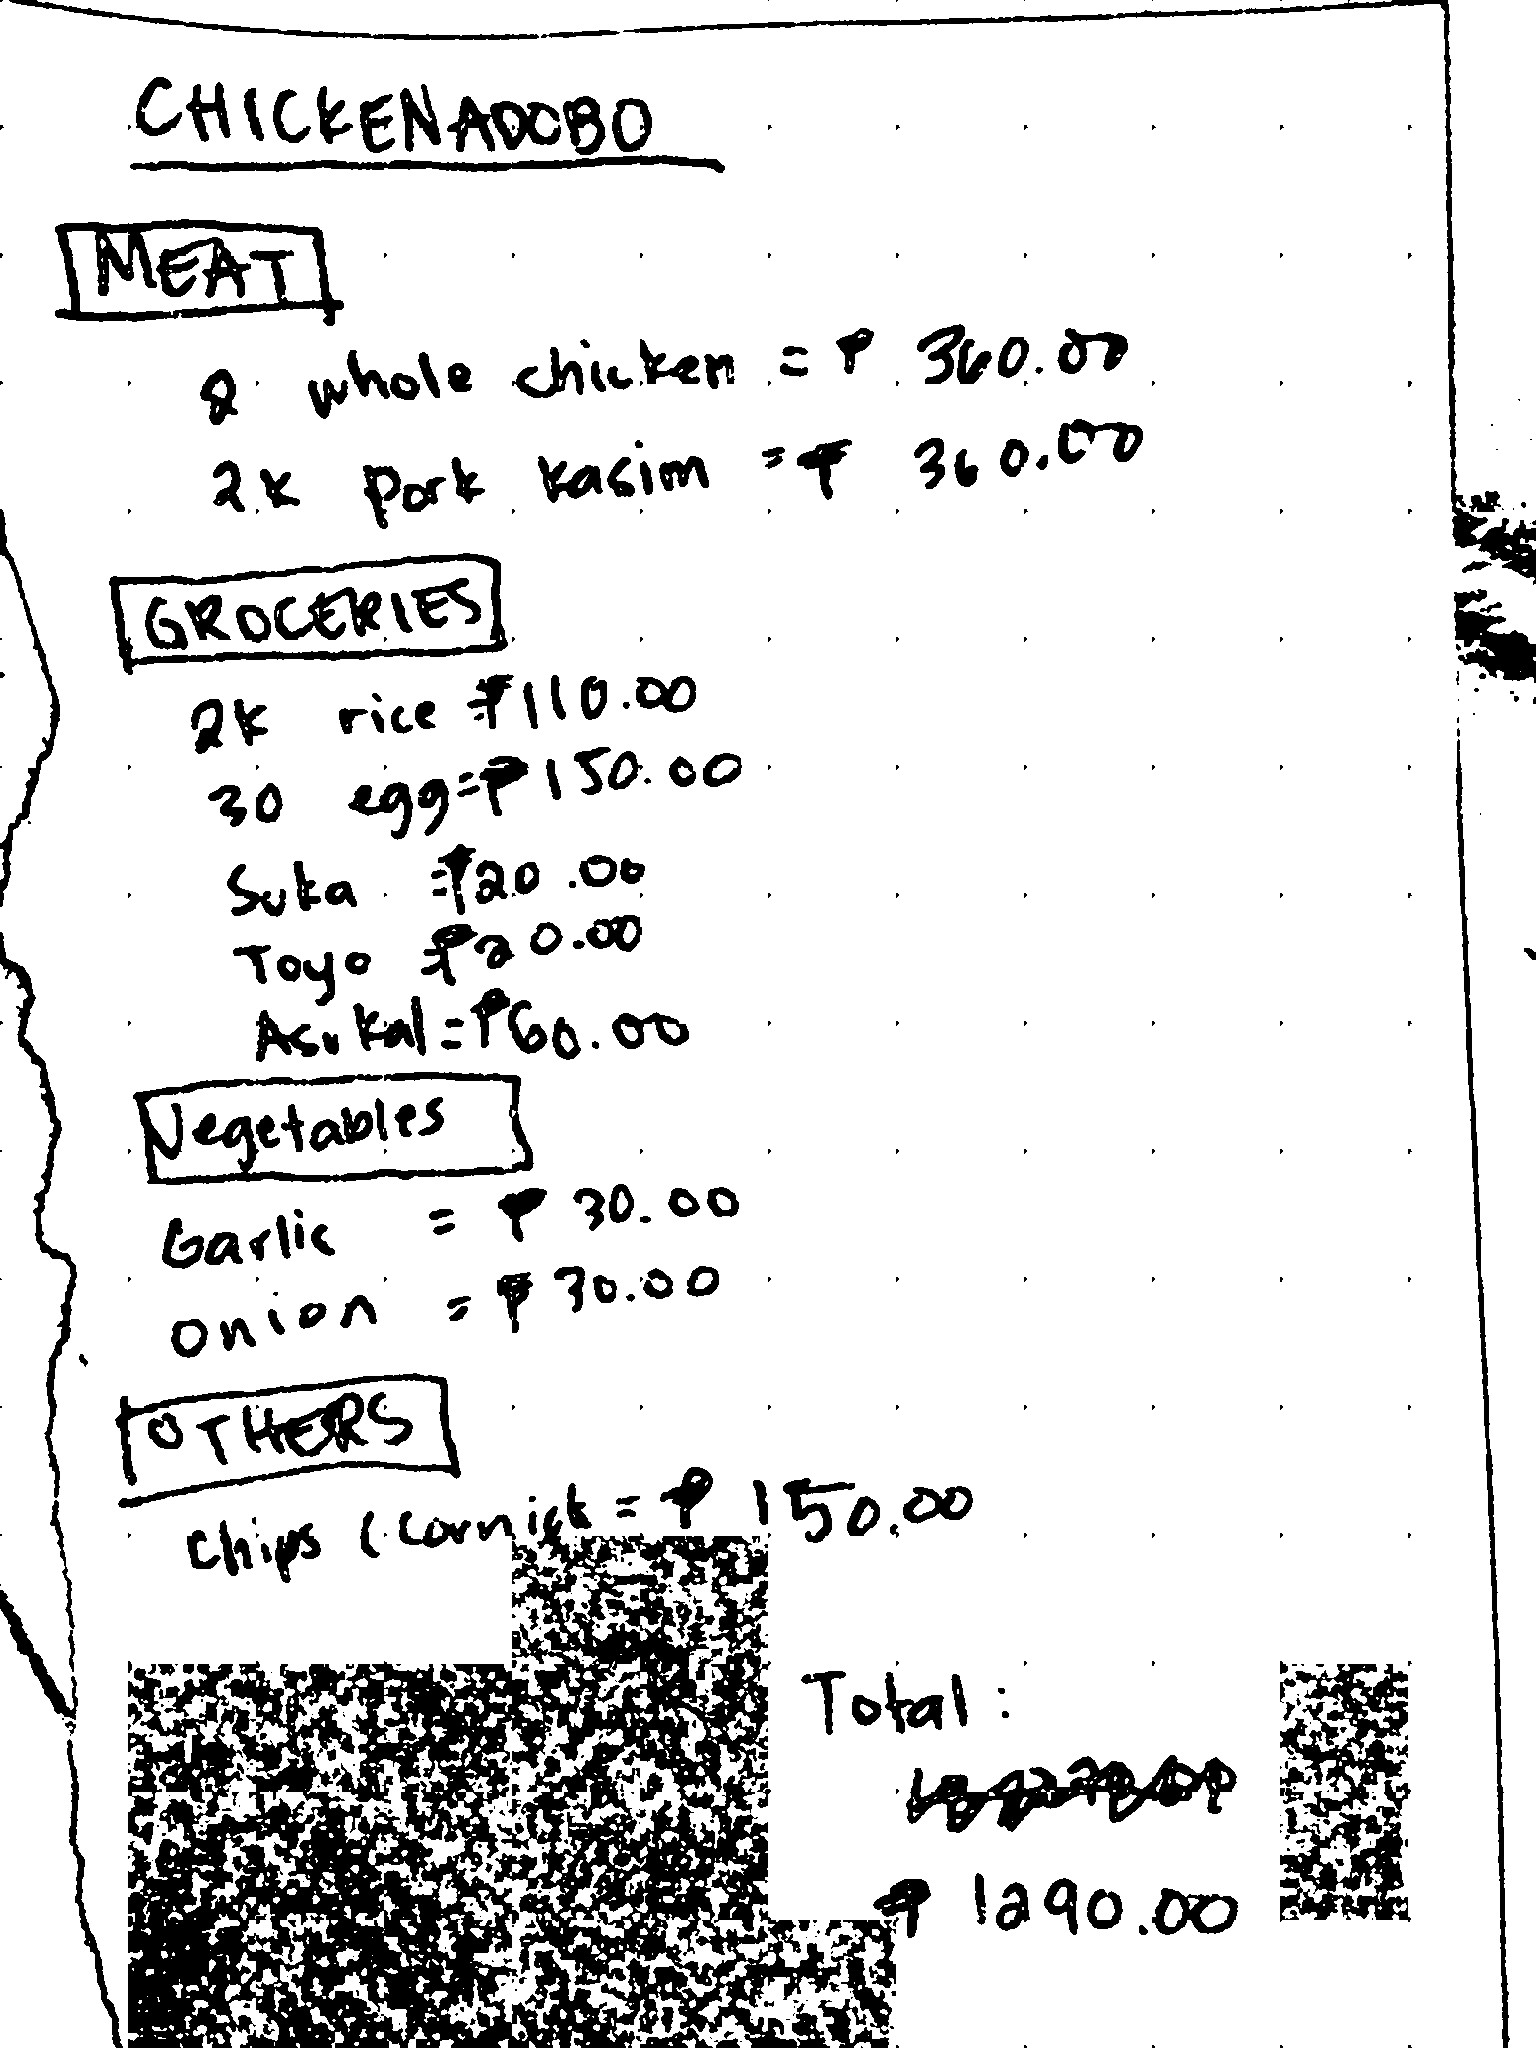 CHICKEN ADOBO
MEAT
2 whole chicken = ₱ 360.00
2k pork kasim = ₱ 360.00
GROCERIES
2k rice = ₱110.00
30 egg = ₱150.00
Suka = ₱20.00
Toyo = ₱20.00
Asukal = ₱60.00
Vegetables
Garlic = ₱ 30.00
Onion = ₱ 30.00
OTHERS
Chips (Cornick = ₱ 150.00
Total :
₱ 1290.00